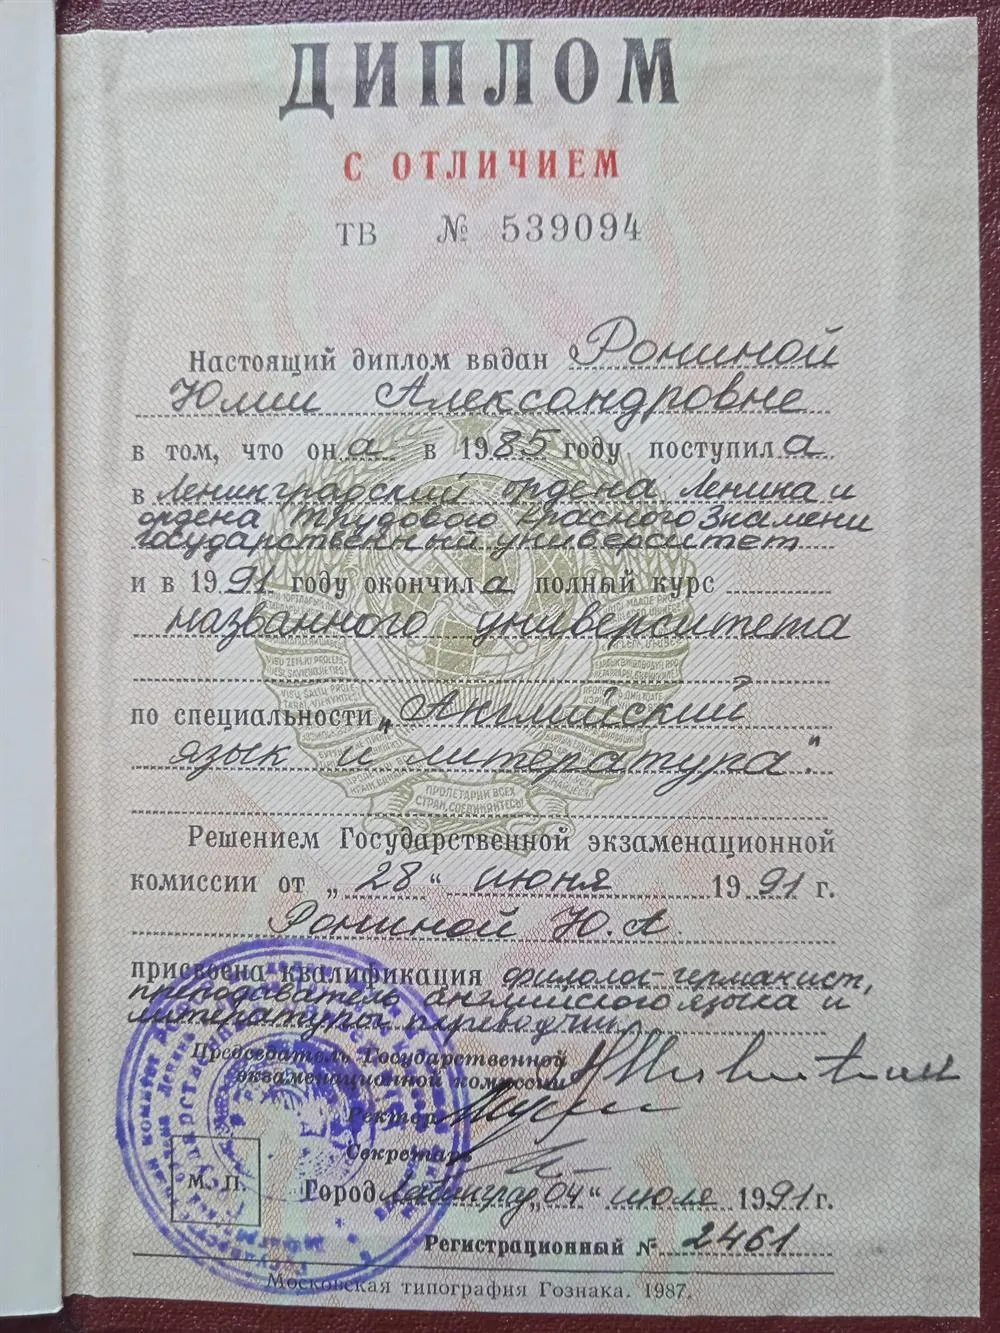 ДИПЛОМ
С ОТЛИЧИЕМ
ТВ № 539094
Настоящий диплом выдан Рониной
Юлии Александровне
в том, что он а в 1985 году поступил а
в Ленинградский ордена Ленина и
ордена Трудового Красного Знамени
государственный университет
и в 1991 году окончил а полный курс
названного университета
по специальности „Английский
язык и литература"
ПРОЛЕТАРИИ ВСЕХ
СТРАН, СОЕДИНЯЙТЕСЬ!
Решением Государственной экзаменационной
комиссии от „28" июня 1991 г.
Рониной Ю.А.
присвоена квалификация филолог-германист,
преподаватель английского языка и
литературы, переводчик
Председатель Государственной
экзаменационной комиссии
Ректор
Секретарь
М. П.
Город Ленинград „04" июля 1991 г.
Регистрационный № 2461
Московская типография Гознака. 1987.